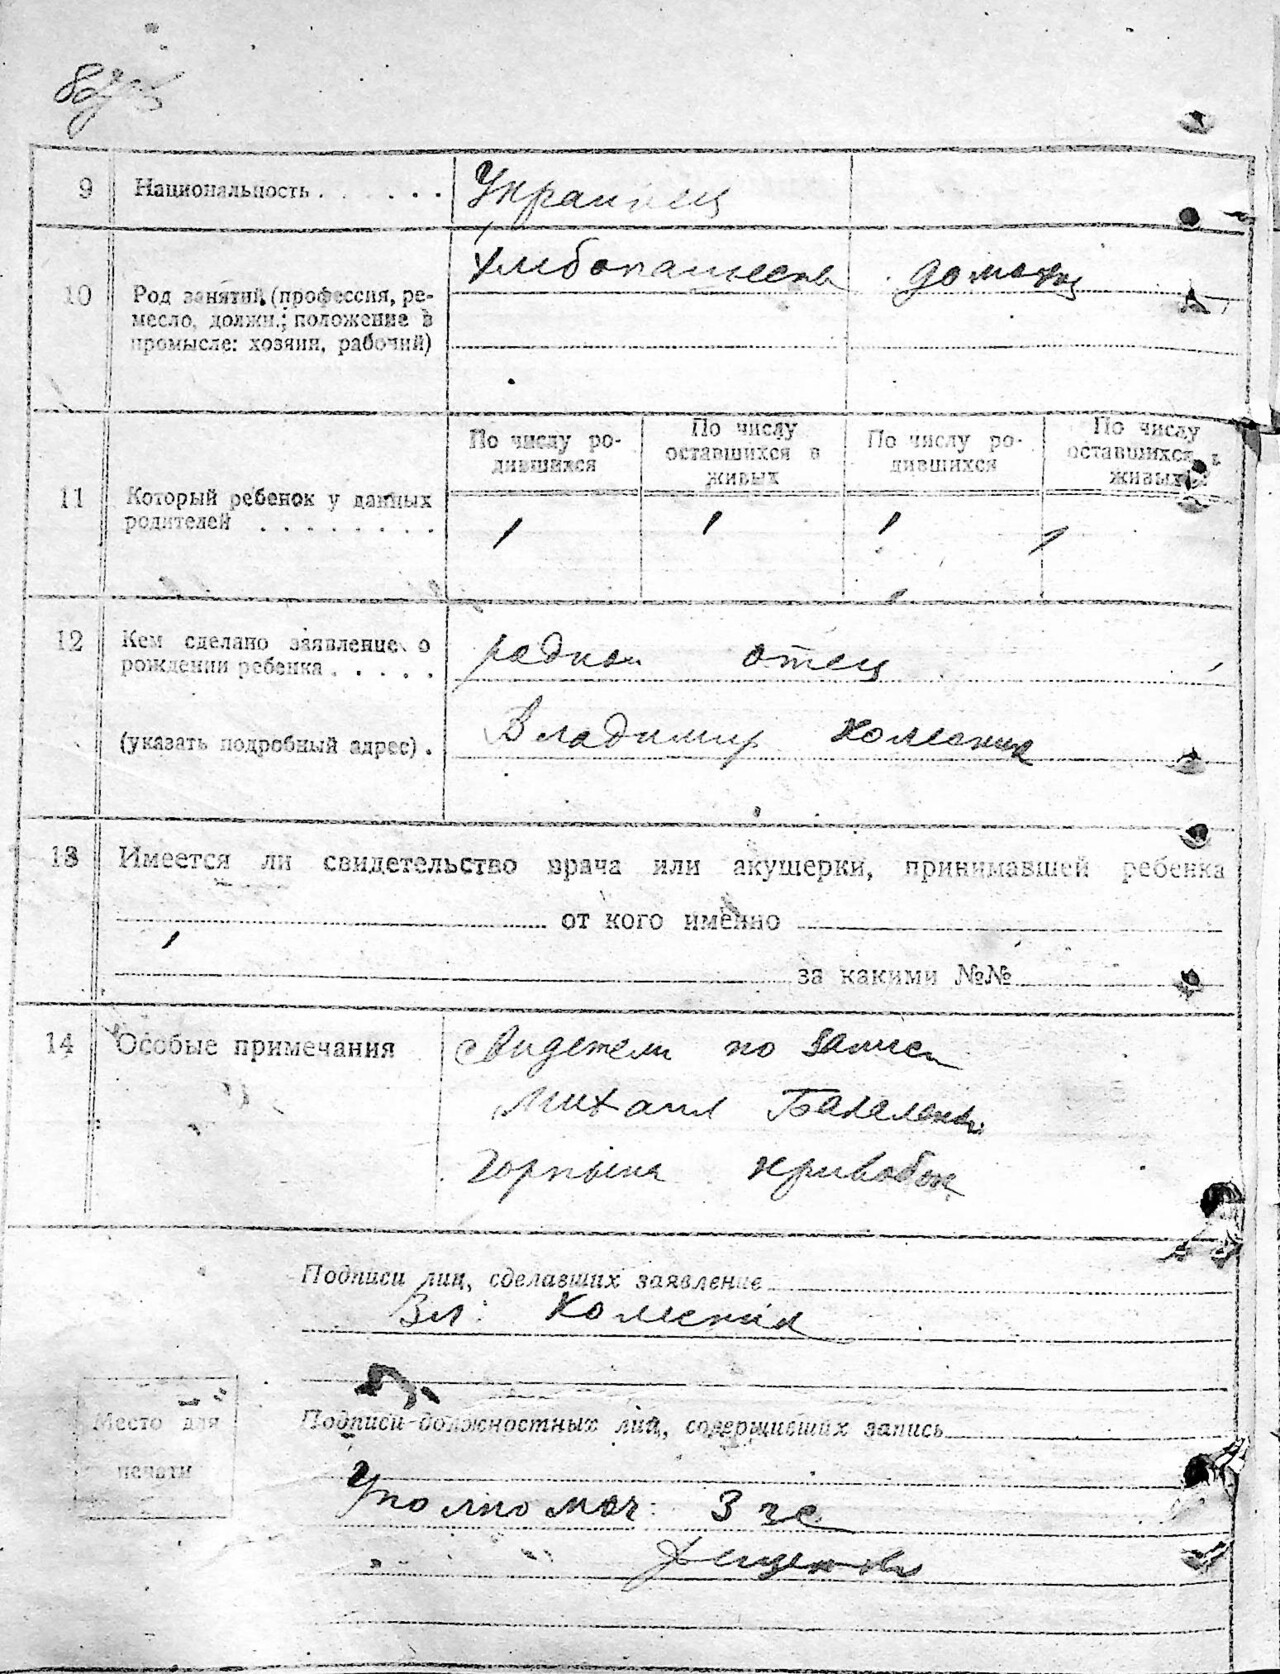 9 Национальность . . . . . . Украинец
10 Род занятий (профессия, ре-
месло, должн.; положение в
промысле: хозяин, рабочий)
Хлибопашество домохоз
11 Который ребенок у данных
родителей . . . . . . . .
По числу ро-
дившихся
По числу
оставшихся в
живых
По числу ро-
дившихся
По числу
оставшихся в
живых
1 1 1 1
12 Кем сделано заявление о
рождении ребенка . . . . .
родной отец
(указать подробный адрес) .
Владимир Колесник
13 Имеется ли свидетельство врача или акушерки, принимавшей ребенка
от кого именно
за какими №№
14 Особые примечания
свидетели по записи
Михаил
Горпына Кривобок
Подписи лиц, сделавших заявление
Вл: Колесник
Место для
печати
Подписи должностных лиц, совершивших запись
Уполномоч: